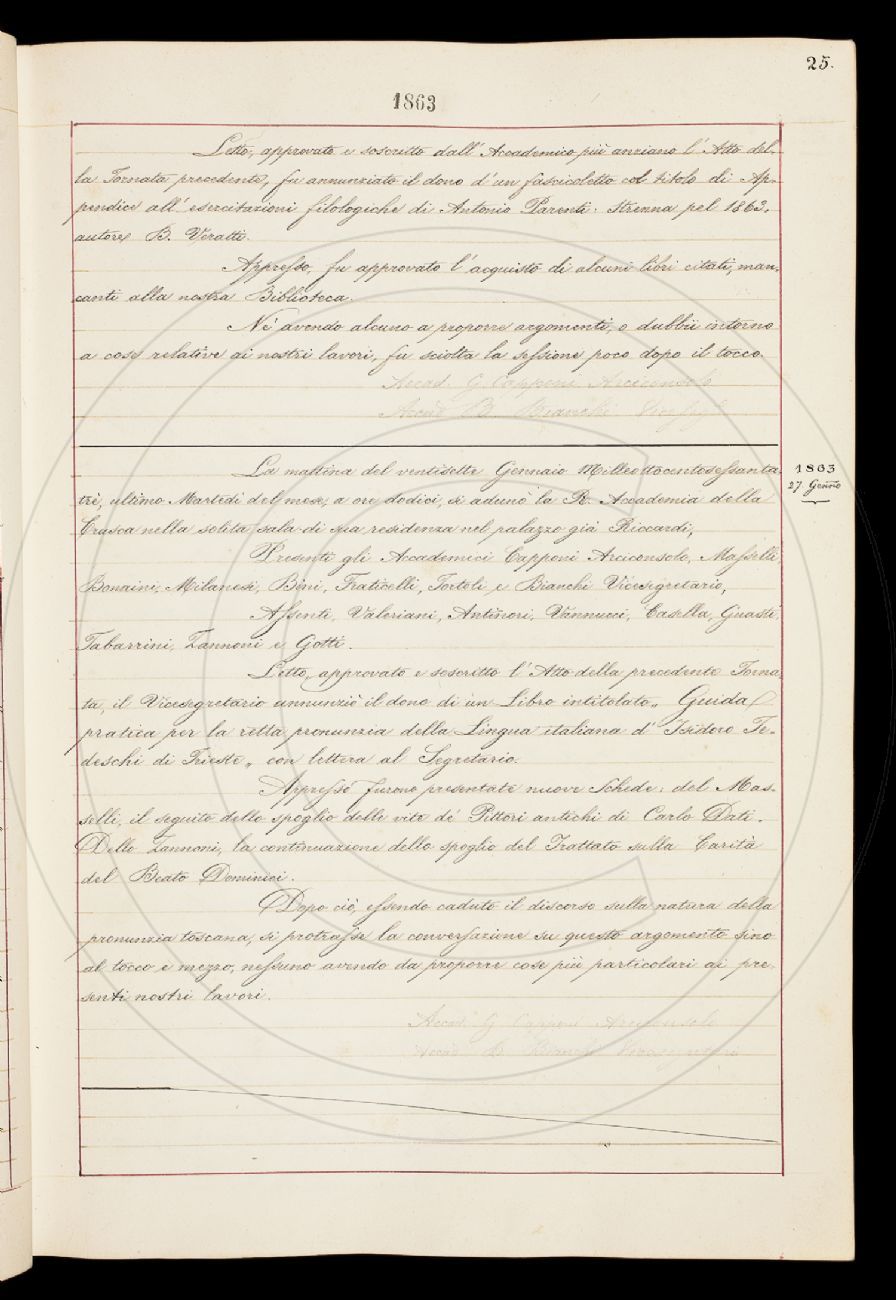 25.
1863
Letto, approvato e soscritto dall' Accademico più anziano l' Atto del-
la Tornata precedente, fu annunziato il dono d' un fascicoletto col titolo di Ap-
pendice all' esercitazioni filologiche di Antonio Parenti. Strenna pel 1863.
autore B. Veratti.
Appresso, fu approvato l' acquisto di alcuni libri citati, man-
canti alla nostra Biblioteca.
Nè avendo alcuno a proporre argomenti, o dubbii intorno
a cose relative ai nostri lavori, fu sciolta la sessione poco dopo il tocco.
Accad. G. Capponi Arciconsolo
Accad. B. Bianchi Viceseg.
La mattina del ventisette Gennaio Milleottocentosessanta-
1863
trè, ultimo Martedì del mese, a ore dodici, si adunò la R. Accademia della
27. Genno
Crusca nella solita sala di sua residenza nel palazzo già Riccardi,
Presenti gli Accademici Capponi Arciconsolo, Masselli,
Bonaini, Milanesi, Bini, Fraticelli, Tortoli, e Bianchi Vicesegretario,
Assenti, Valeriani, Antinori, Vannucci, Casella, Guasti,
Tabarrini, Zannoni e Gotti.
Letto, approvato e soscritto l' Atto della precedente Torna-
ta, il Vicesegretario annunziò il dono di un Libro intitolato „ Guida
pratica per la retta pronunzia della Lingua italiana d' Isidoro Te-
deschi di Trieste „ con lettera al Segretario.
Appresso furono presentate nuove Schede: del Mas-
selli, il seguito dello spoglio delle vite de' Pittori antichi di Carlo Dati.
Dello Zannoni, la continuazione dello spoglio del Trattato sulla Carità
del Beato Dominici.
Dopo ciò, essendo caduto il discorso sulla natura della
pronunzia toscana, si protrasse la conversazione su questo argomento sino
al tocco e mezzo, nessuno avendo da proporre cose più particolari ai pre-
senti nostri lavori.
Accad. G. Capponi Arciconsolo
Accad. B. Bianchi Vicesegretario